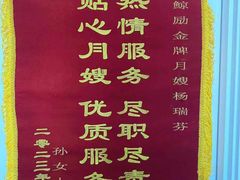 鲸励金牌月嫂杨瑞芬
热情服务 尽职尽责
贴心月嫂 优质服务
孙女
二零二二年